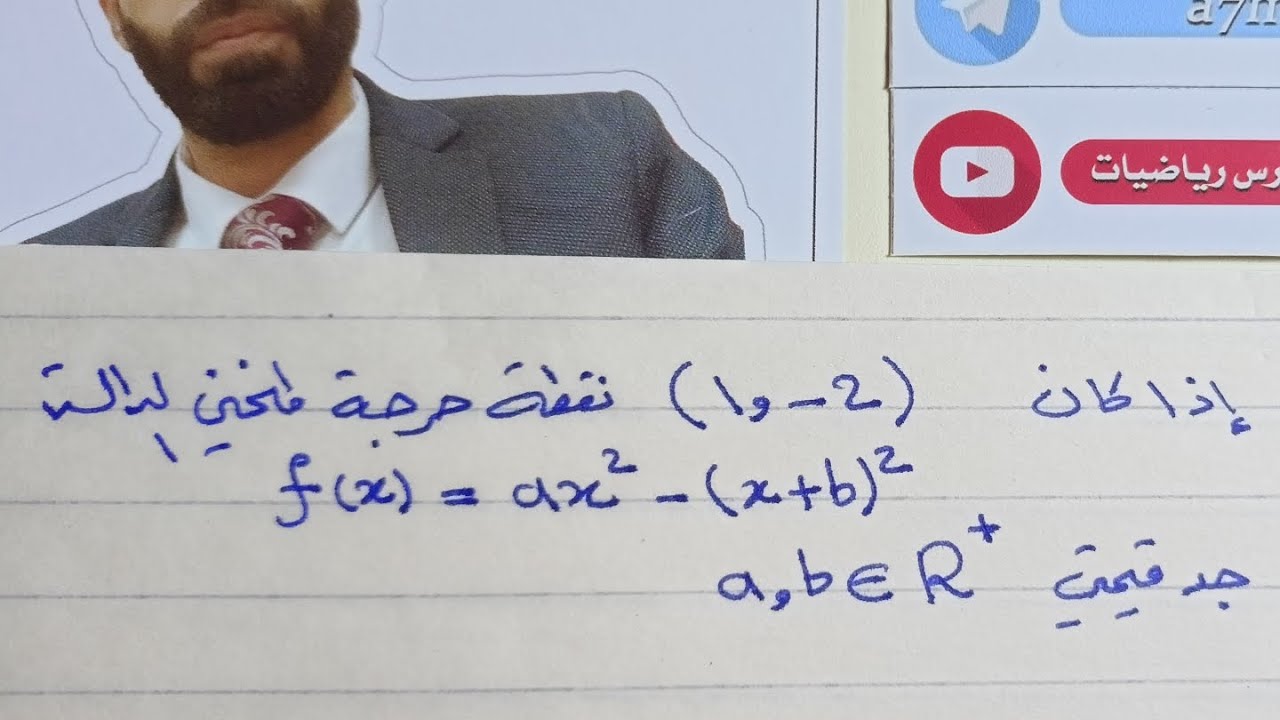 a7m
رس رياضيات
إذا كان (1 و -2) نقطة حرجة لمنحني الدالة
f(x) = ax² - (x+b)²
جد قيمتي a, b ∈ R⁺